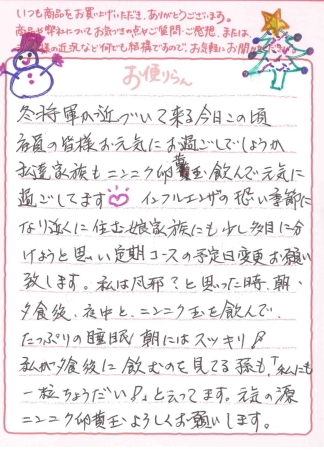 いつも商品をお買上げいただき、ありがとうございます。
商品や弊社についてお気づきの点やご質問・ご意見、または、
様の近況など何でも結構ですので、お気軽にお聞かせください
お便りらん
冬将軍が近づいて来る今日この頃
社員の皆様お元気にお過ごしでしょうか
私達家族もニンニク卵黄玉飲んで元気に
過ごしてます インフルエンザの恐い季節に
なり近くに住む娘家族にも少し多目に分
けようと思い定期コースの予定日変更お願い
致します。私は風邪?と思った時、朝・
夕食後、夜中と、ニンニク玉を飲んで、
たっぷりの睡眠 朝にはスッキリ!
私が夕食後に飲むのを見てる孫も、「私にも
一粒ちょうだい!」と云ってます。元気の源
ニンニク卵黄玉よろしくお願いします。